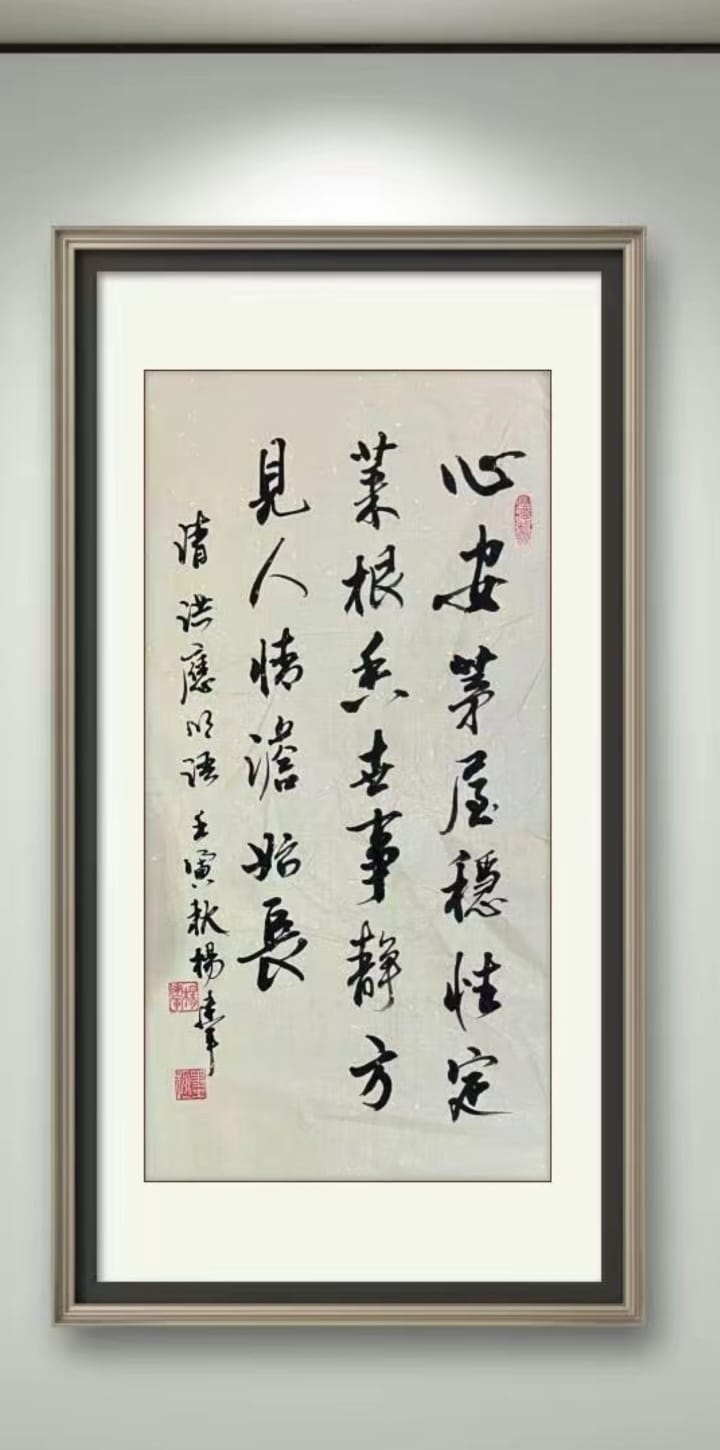 心安茅屋穩性定
菜根香世事靜方
見人情澹始長
清洪應明語壬寅秋楊建军